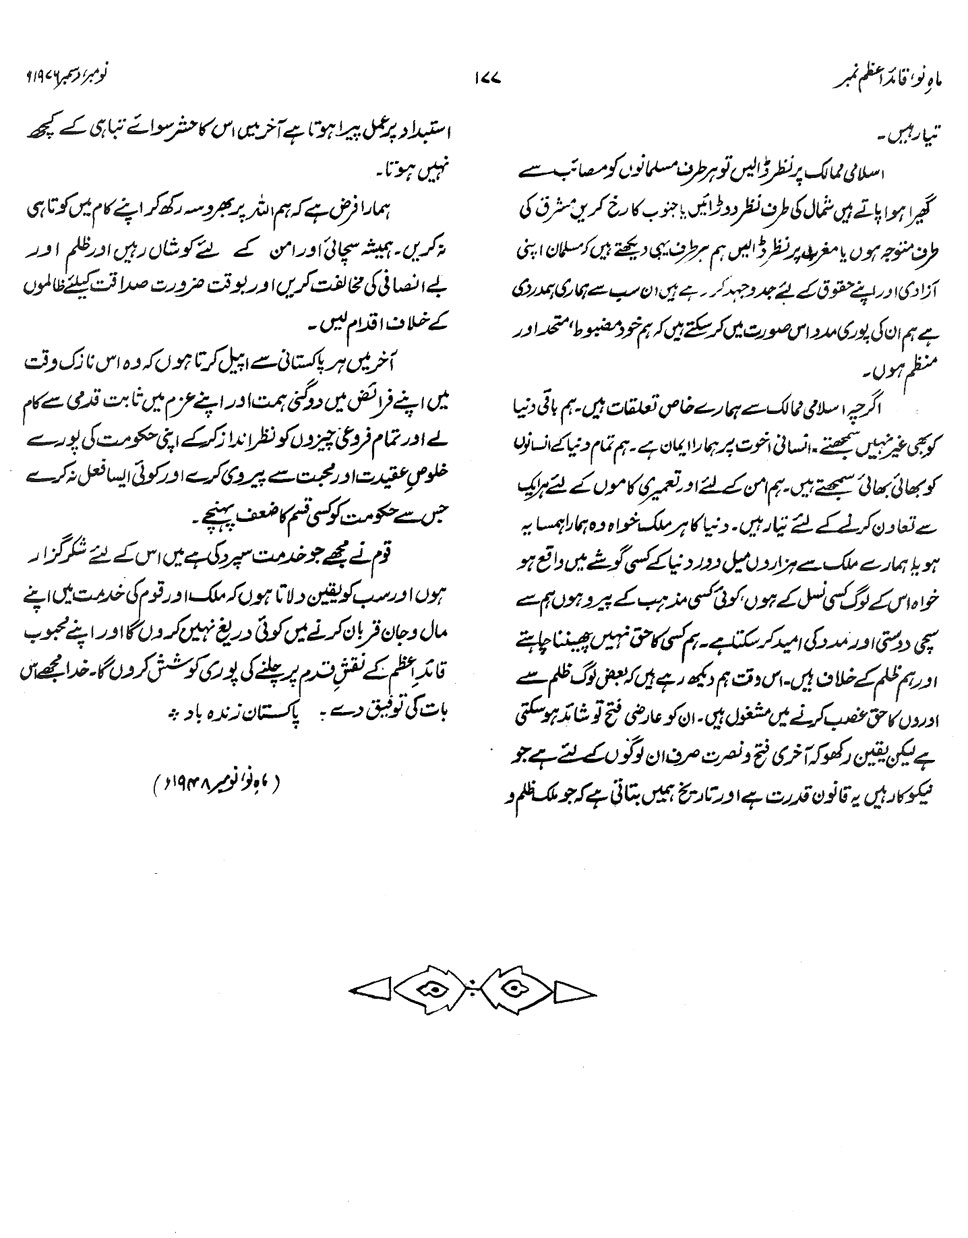 ماہِ نو، قائدِ اعظم نمبر
۱۷۷
نومبر، دسمبر ۱۹۷۶ء
تیار رہیں۔
اسلامی ممالک پر نظر ڈالیں تو ہر طرف مسلمانوں کو مصائب سے
گھیرا ہوا پاتے ہیں شمال کی طرف نظر دوڑائیں یا جنوب کا رخ کریں مشرق کی
طرف متوجہ ہوں یا مغرب پر نظر ڈالیں ہم ہر طرف یہی دیکھتے ہیں کہ مسلمان اپنی
آزادی اور اپنے حقوق کے لئے جدوجہد کر رہے ہیں ان سب سے ہماری ہمدردی
ہے ہم ان کی پوری مدد اس صورت میں کر سکتے ہیں کہ ہم خود مضبوط، متحد اور
منظم ہوں۔
اگرچہ اسلامی ممالک سے ہمارے خاص تعلقات ہیں۔ ہم باقی دنیا
کو بھی غیر نہیں سمجھتے۔ انسانی اخوت پر ہمارا ایمان ہے۔ ہم تمام دنیا کے انسانوں
کو بھائی بھائی سمجھتے ہیں۔ ہم امن کے لئے اور تعمیری کاموں کے لئے ہر ایک
سے تعاون کرنے کے لئے تیار ہیں۔ دنیا کا ہر ملک خواہ وہ ہمارا ہمسایہ
ہو یا ہمارے ملک سے ہزاروں میل دور دنیا کے کسی گوشے میں واقع ہو
خواہ اس کے لوگ کسی نسل کے ہوں، کوئی کسی مذہب کے پیرو ہوں ہم سے
سچی دوستی اور مدد کی امید کر سکتا ہے۔ ہم کسی کا حق نہیں چھیننا چاہتے
اور ہم ظلم کے خلاف ہیں۔ اس وقت ہم دیکھ رہے ہیں کہ بعض لوگ ظلم سے
اوروں کا حق غصب کرنے میں مشغول ہیں۔ ان کو عارضی فتح تو شائد ہو سکتی
ہے لیکن یقین رکھو کہ آخری فتح و نصرت صرف ان لوگوں کے لئے ہے جو
نیکوکار ہیں یہ قانون قدرت ہے اور تاریخ ہمیں بتاتی ہے کہ جو ملک ظلم و
استبداد پر عمل پیرا ہوتا ہے آخر میں اس کا حشر سوائے تباہی کے کچھ
نہیں ہوتا۔
ہمارا فرض ہے کہ ہم اللہ پر بھروسہ رکھ کر اپنے کام میں کوتاہی
نہ کریں۔ ہمیشہ سچائی اور امن کے لئے کوشاں رہیں اور ظلم اور
بے انصافی کی مخالفت کریں اور بوقت ضرورت صداقت کیلئے ظالموں
کے خلاف اقدام لیں۔
آخر میں ہر پاکستانی سے اپیل کرتا ہوں کہ وہ اس نازک وقت
میں اپنے فرائض میں دوگنی ہمت اور اپنے عزم میں ثابت قدمی سے کام
لے اور تمام فروعی چیزوں کو نظر انداز کر کے اپنی حکومت کی پورے
خلوص عقیدت اور محبت سے پیروی کرے اور کوئی ایسا فعل نہ کرے
جس سے حکومت کو کسی قسم کا ضعف پہنچے۔
قوم نے مجھے جو خدمت سپرد کی ہے میں اس کے لئے شکر گزار
ہوں اور سب کو یقین دلاتا ہوں کہ ملک اور قوم کی خدمت میں اپنے
مال و جان قربان کرنے میں کوئی دریغ نہیں کروں گا اور اپنے محبوب
قائدِ اعظم کے نقشِ قدم پر چلنے کی پوری کوشش کروں گا۔ خدا مجھے اس
بات کی توفیق دے۔ پاکستان زندہ باد
(ماہِ نو، نومبر ۱۹۴۸ء)